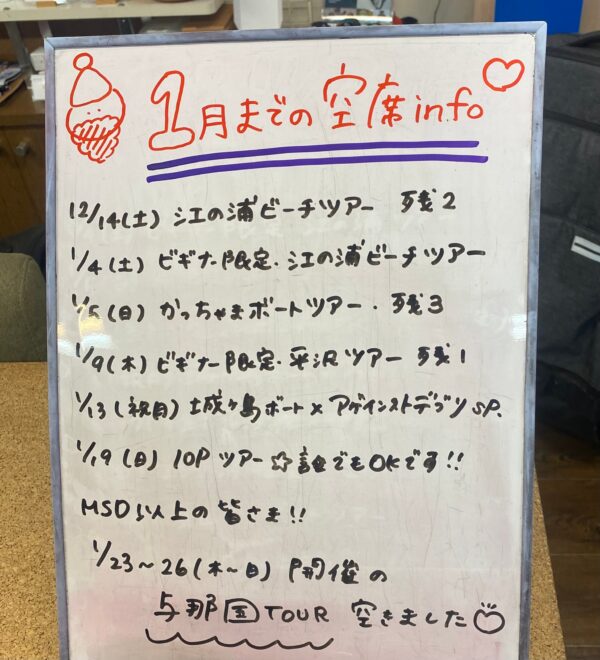 1月までの空席info
12/14(土) 江の浦ビーチツアー 残2
1/4(土) ビギナー限定・江の浦ビーチツアー
1/5(日) かっちゃまボートツアー・残3
1/9(木) ビギナー限定・平沢ツアー 残1
1/13(祝月) 城ヶ島ボート×アゲインストデブリSP.
1/19(日) IOPツアー☆誰でもOKです!!
MSD以上の皆さま!!
1/23~26(木~日) 開催の
与那国TOUR 空きました